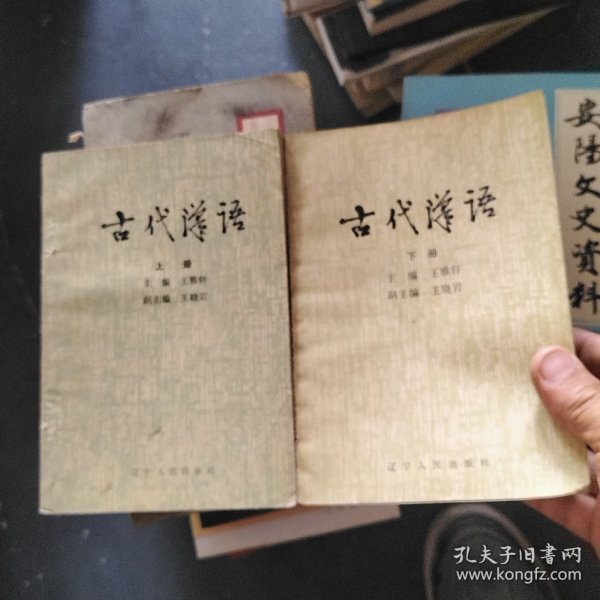 古代漢语
上册
主编 王雅轩
副主编 王晓岩
辽宁人民出版社
古代漢语
下册
主编 王雅轩
副主编 王晓岩
辽宁人民出版社
安陽文史資料
孔夫子旧書网
www.kongfz.com